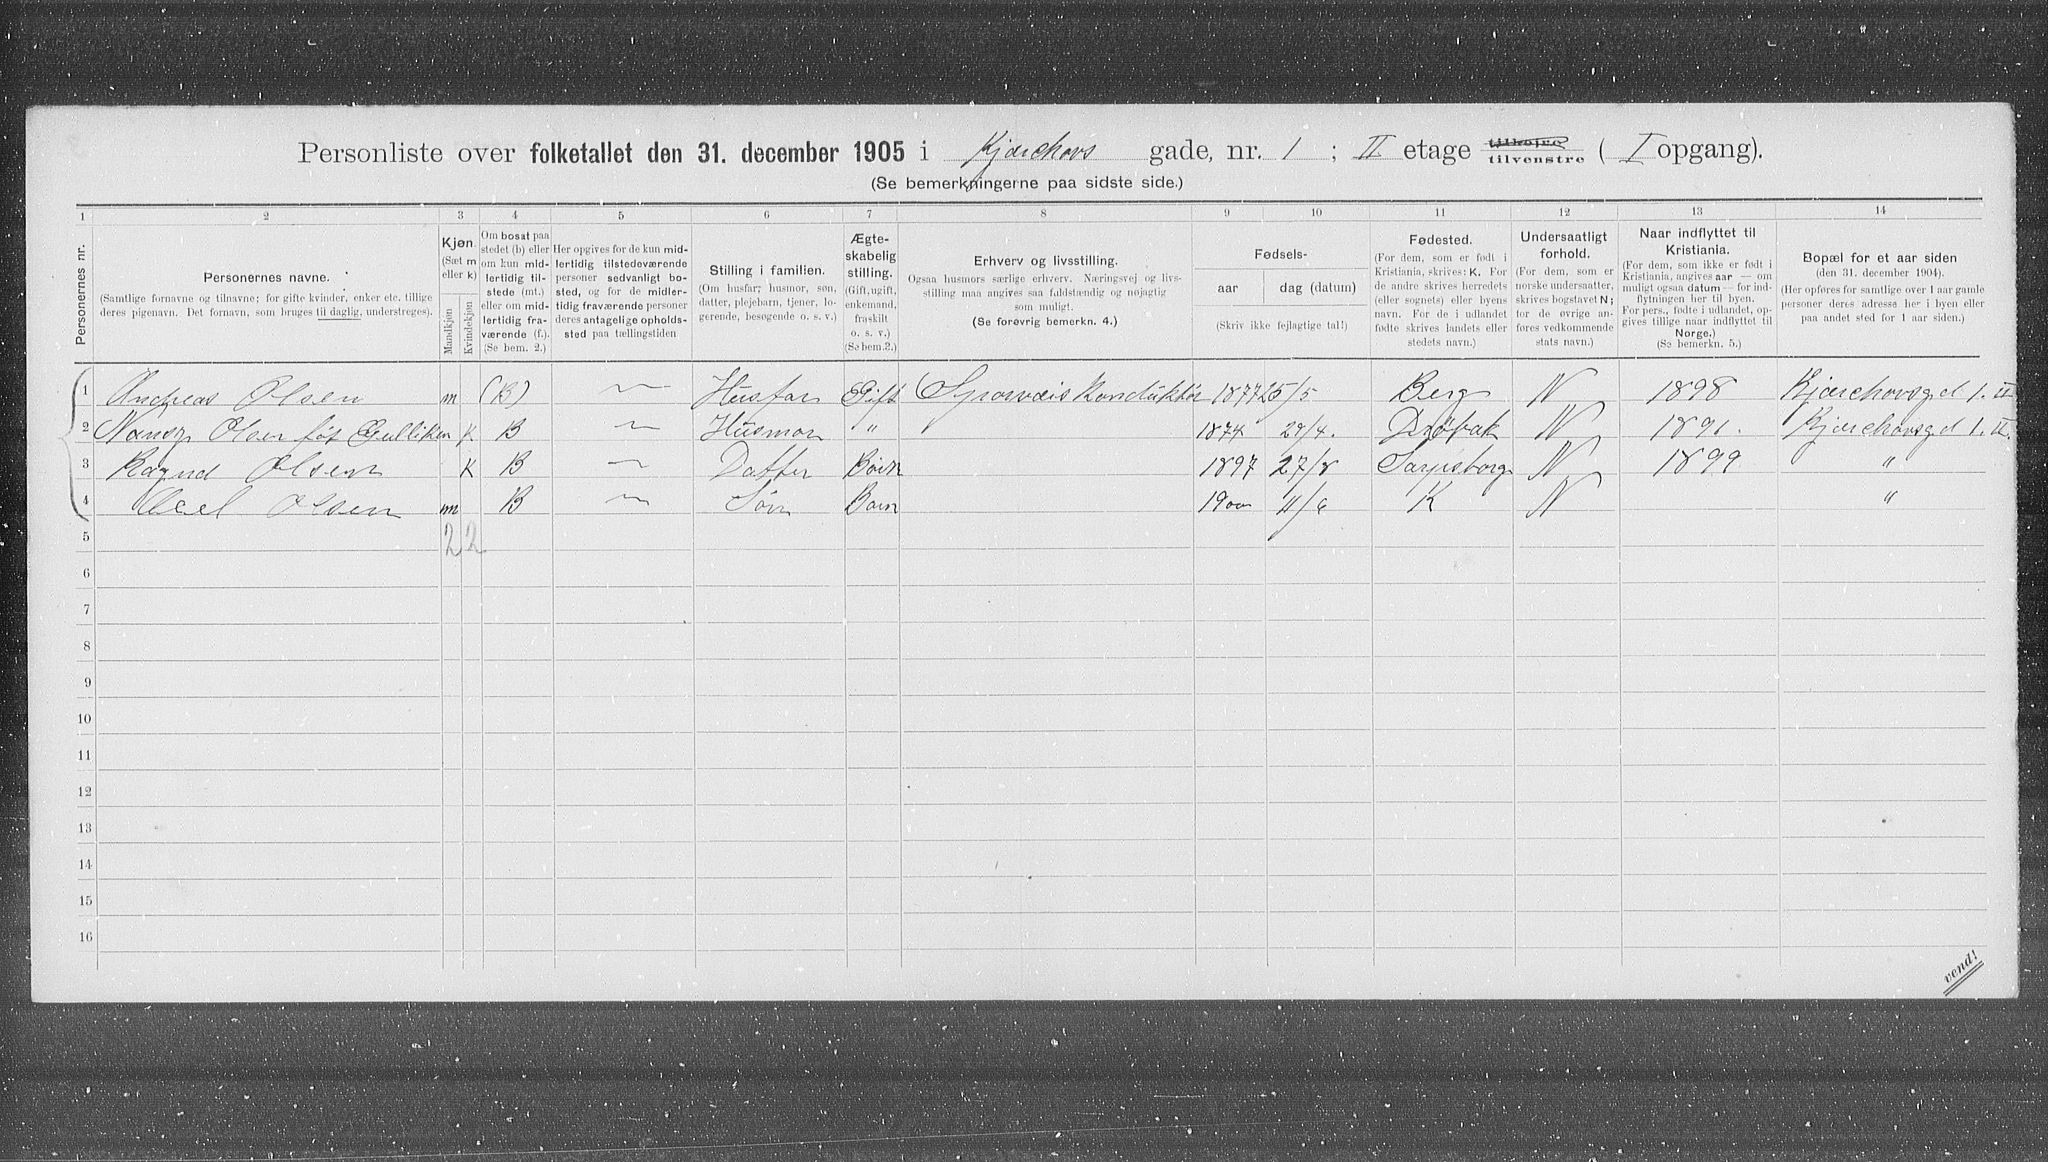 Personliste over folketallet den 31. december 1905 i Kjærchovs gade, nr. 1 ; II etage tilhøjre tilvenstre ( I opgang).
(Se bemerkningerne paa sidste side.)
1 2 3 4 5 6 7 8 9 10 11 12 13 14
Personernes nr.
Personernes navne.
(Samtlige fornavne og tilnavne; for gifte kvinder, enker etc. tillige deres pigenavn. Det fornavn, som bruges til daglig, understreges).
Kjøn.
(Sæt m eller k)
Mandkjøn
Kvindekjøn
Om bosat paa stedet (b) eller om kun midlertidig tilstede (mt.) eller om midlertidig fraværende (f.). (Se bem. 2.)
Her opgives for de kun midlertidig tilstedeværende personer sedvanligt bosted, og for de midlertidig fraværende personer deres antagelige opholdssted paa tællingstiden
Stilling i familien.
(Om husfar, husmor, søn, datter, plejebarn, tjener, logerende, besøgende o. s. v.)
Ægteskabelig stilling.
(Gift, ugift, enkemand, fraskilt o. s. v.)
(Se bem.3.)
Erhverv og livsstilling.
Ogsaa husmors særlige erhverv. Næringsvej og livsstilling maa angives saa fuldstændig og nøjagtig som muligt.
(Se forøvrig bemerkn. 4.)
Fødsels-
aar
dag (datum)
(Skriv ikke fejlagtige tal!)
Fødested.
(For dem, som er født i Kristiania, skrives: K. For de andre skrives herredets (eller sognets) eller byens navn. For de i udlandet fødte skrives landets eller stedets navn.)
Undersaatligt forhold.
(For dem, som er norske undersaatter, skrives bogstavet N; for de øvrige anføres vedkommende stats navn.)
Naar indflyttet til Kristiania.
(For dem, som ikke er født i Kristiania, angives aar — om muligt ogsaa datum — for indflytningen her til byen. For pers., fødte i udlandet, opgives tillige naar indflyttet til Norge.)
(Se bemerkn. 5.)
Bopæl for et aar siden
(den 31. december 1904).
(Her opføres for samtlige over 1 aar gamle personer deres adresse her i byen eller paa andet sted for 1 aar siden.)
1 Andreas Olsen m (B) — Husfar Gift Sporveiskonduktør 1877 25/5 Berg N 1898 Kjærchovsgd 1. II
2 Nansy Olsen føt Gulliksen K B — Husmor " 1874 29/4. Drøbak N 1891. Kjærchovsgd 1. II.
3 Ragnd Olsen K B — Datter Barn 1897 27/8 Sarpsborg N 1899 "
4 Axel Olsen m B — Søn Barn 1900 11/6 K N "
5 2 2
6
7
8
9
10
11
12
13
14
15
16
vend!